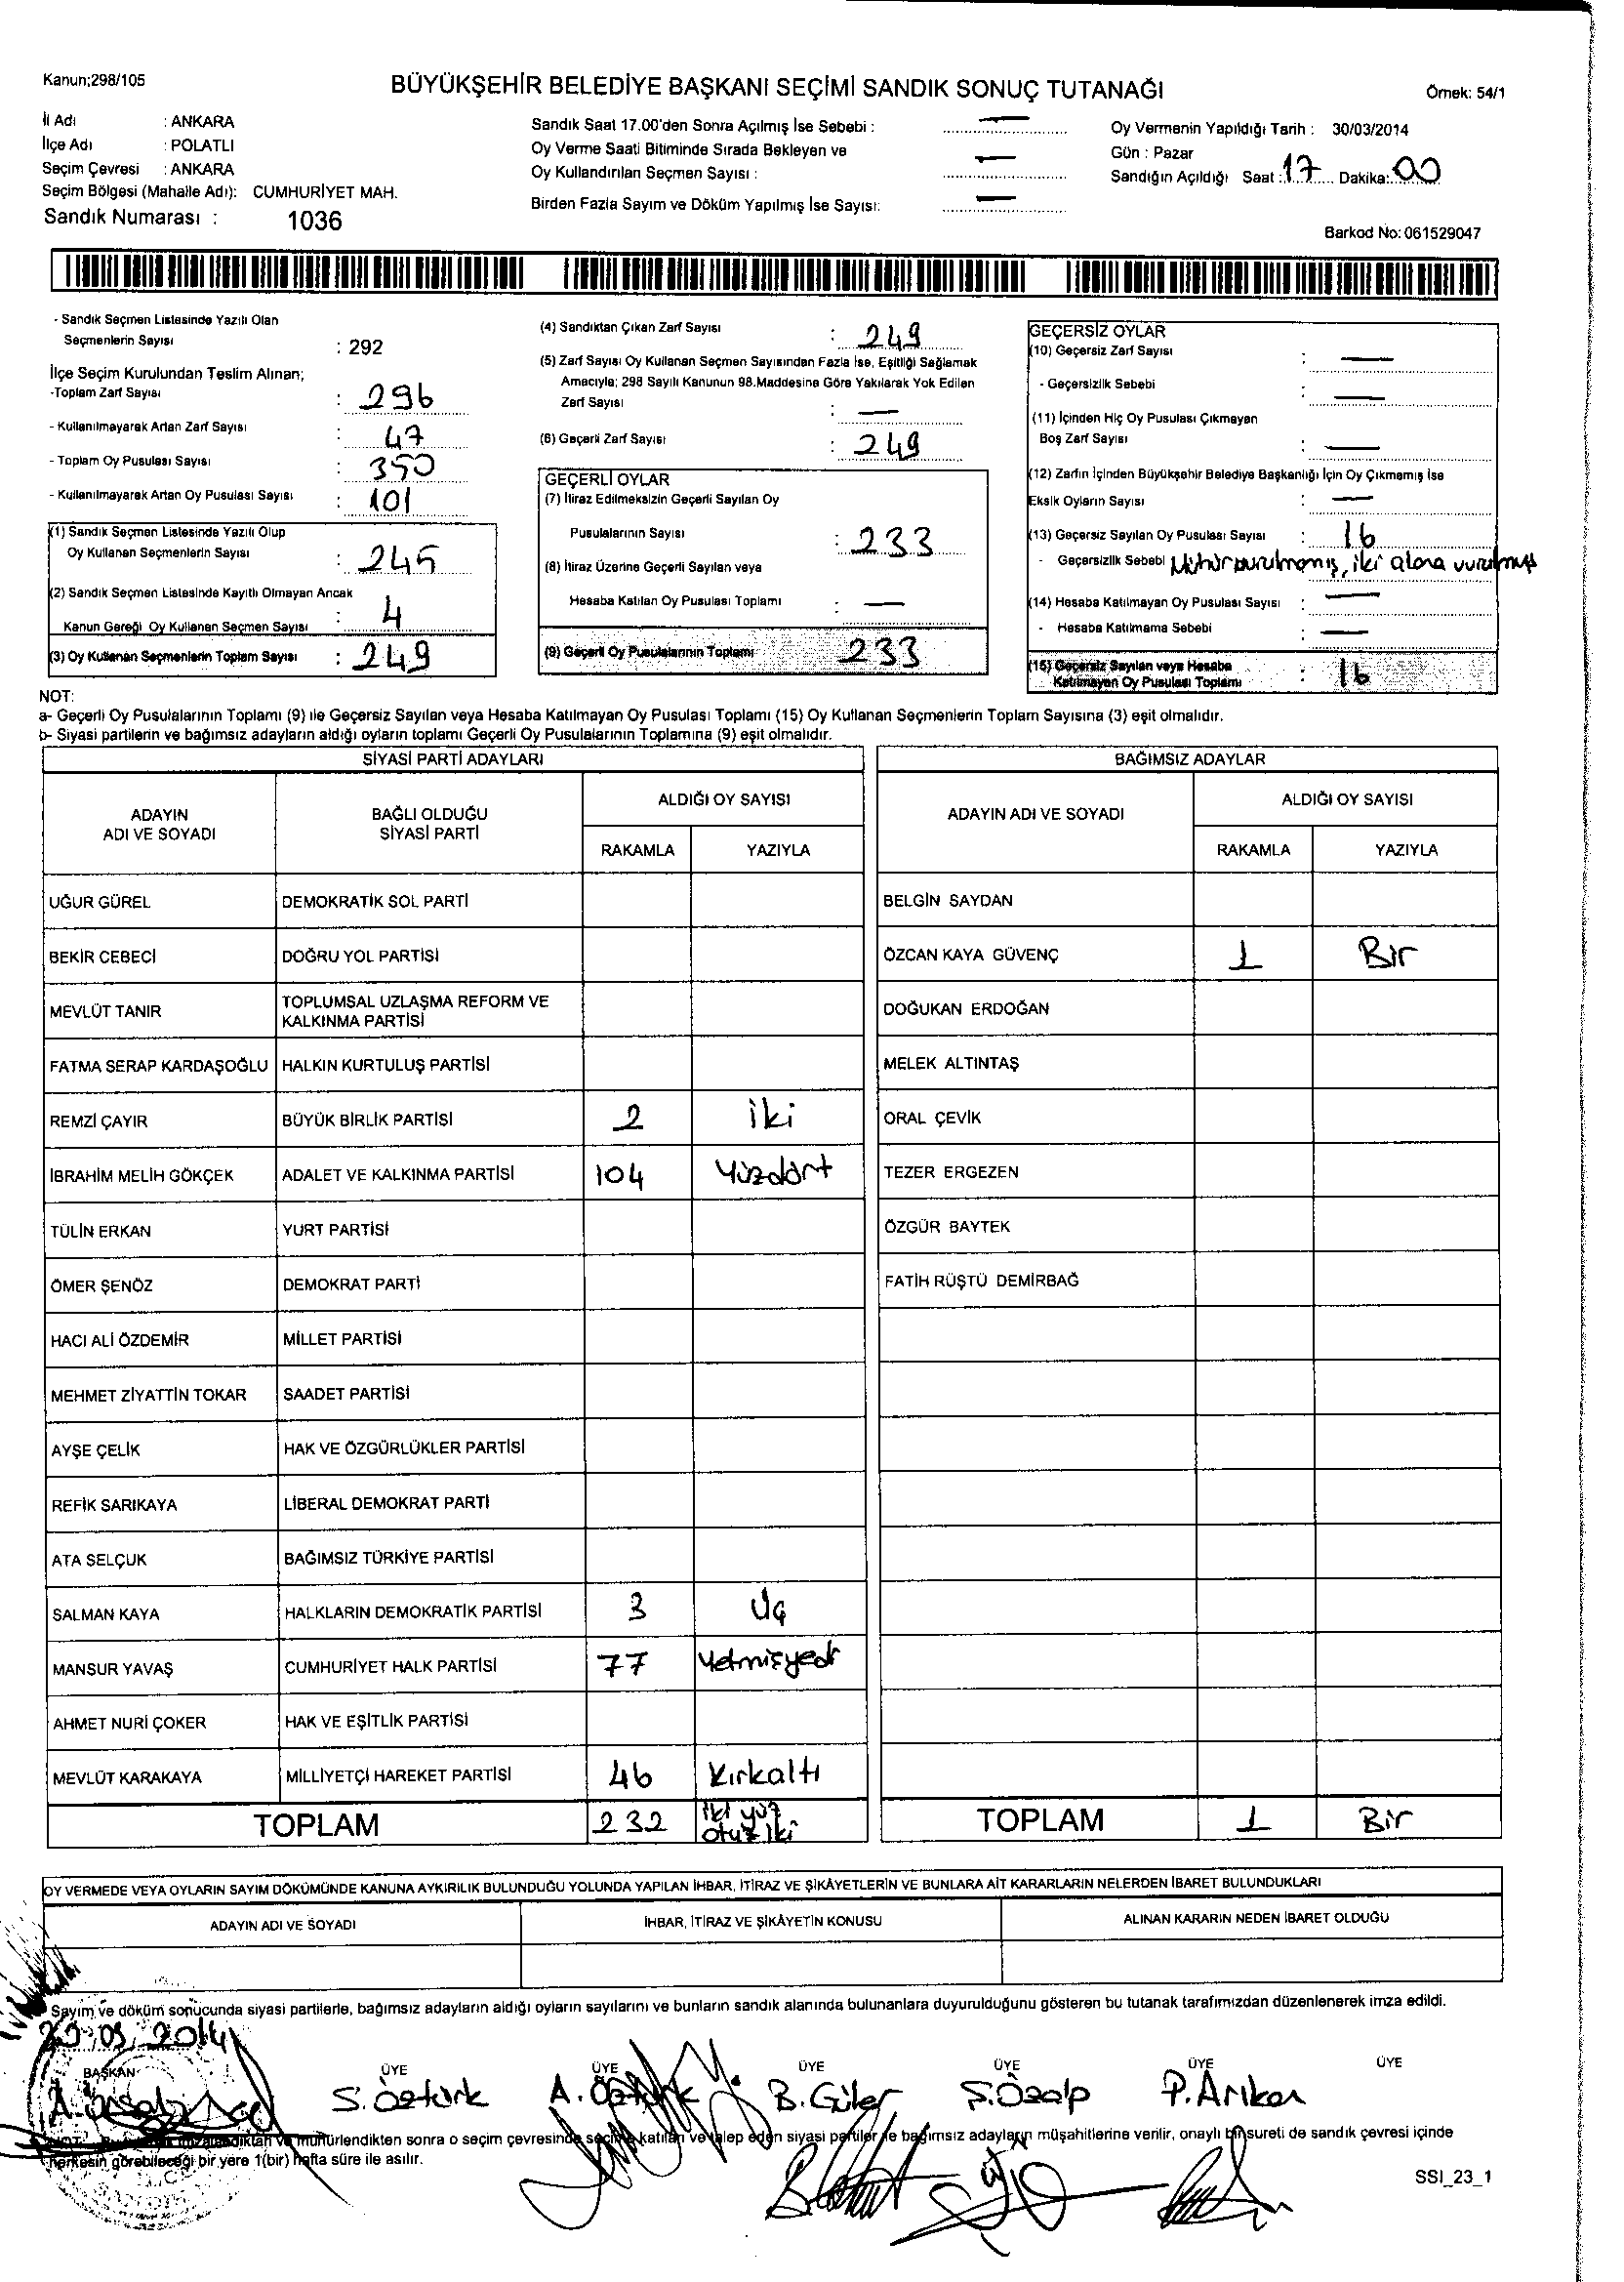 Kanun;298/105
BÜYÜKŞEHİR BELEDİYE BAŞKANI SEÇİMİ SANDIK SONUÇ TUTANAĞI
Örnek: 54/1
İl Adı : ANKARA
İlçe Adı : POLATLI
Seçim Çevresi : ANKARA
Seçim Bölgesi (Mahalle Adı): CUMHURİYET MAH.
Sandık Numarası : 1036
Sandık Saat 17.00'den Sonra Açılmış İse Sebebi : —
Oy Verme Saati Bitiminde Sırada Bekleyen ve
Oy Kullandırılan Seçmen Sayısı : —
Birden Fazla Sayım ve Döküm Yapılmış İse Sayısı: —
Oy Vermenin Yapıldığı Tarih : 30/03/2014
Gün : Pazar
Sandığın Açıldığı Saat : 17 Dakika: 00
Barkod No: 061529047
- Sandık Seçmen Listesinde Yazılı Olan
Seçmenlerin Sayısı : 292
İlçe Seçim Kurulundan Teslim Alınan;
-Toplam Zarf Sayısı : 296
- Kullanılmayarak Artan Zarf Sayısı : 47
- Toplam Oy Pusulası Sayısı : 350
- Kullanılmayarak Artan Oy Pusulası Sayısı : 101
(1) Sandık Seçmen Listesinde Yazılı Olup
Oy Kullanan Seçmenlerin Sayısı : 245
(2) Sandık Seçmen Listesinde Kayıtlı Olmayan Ancak
Kanun Gereği Oy Kullanan Seçmen Sayısı : 4
(3) Oy Kullanan Seçmenlerin Toplam Sayısı : 249
(4) Sandıktan Çıkan Zarf Sayısı : 249
(5) Zarf Sayısı Oy Kullanan Seçmen Sayısından Fazla İse, Eşitliği Sağlamak
Amacıyla; 298 Sayılı Kanunun 98.Maddesine Göre Yakılarak Yok Edilen
Zarf Sayısı : —
(6) Geçerli Zarf Sayısı : 249
GEÇERLİ OYLAR
(7) İtiraz Edilmeksizin Geçerli Sayılan Oy
Pusulalarının Sayısı : 233
(8) İtiraz Üzerine Geçerli Sayılan veya
Hesaba Katılan Oy Pusulası Toplamı : —
(9) Geçerli Oy Pusulalarının Toplamı 233
GEÇERSİZ OYLAR
(10) Geçersiz Zarf Sayısı : —
- Geçersizlik Sebebi : —
(11) İçinden Hiç Oy Pusulası Çıkmayan
Boş Zarf Sayısı : —
(12) Zarfın İçinden Büyükşehir Belediye Başkanlığı İçin Oy Çıkmamış İse
Eksik Oyların Sayısı : —
(13) Geçersiz Sayılan Oy Pusulası Sayısı : 16
- Geçersizlik Sebebi Mühür vurulmamış, iki alana vurulmuş
(14) Hesaba Katılmayan Oy Pusulası Sayısı : —
- Hesaba Katılmama Sebebi : —
(15) Geçersiz Sayılan veya Hesaba
Katılmayan Oy Pusulası Toplamı : 16
NOT:
a- Geçerli Oy Pusulalarının Toplamı (9) ile Geçersiz Sayılan veya Hesaba Katılmayan Oy Pusulası Toplamı (15) Oy Kullanan Seçmenlerin Toplam Sayısına (3) eşit olmalıdır.
b- Siyasi partilerin ve bağımsız adayların aldığı oyların toplamı Geçerli Oy Pusulalarının Toplamına (9) eşit olmalıdır.
SİYASİ PARTİ ADAYLARI
ADAYIN ADI VE SOYADI BAĞLI OLDUĞU SİYASİ PARTİ ALDIĞI OY SAYISI
RAKAMLA YAZIYLA
UĞUR GÜREL DEMOKRATİK SOL PARTİ
BEKİR CEBECİ DOĞRU YOL PARTİSİ
MEVLÜT TANIR TOPLUMSAL UZLAŞMA REFORM VE KALKINMA PARTİSİ
FATMA SERAP KARDAŞOĞLU HALKIN KURTULUŞ PARTİSİ
REMZİ ÇAYIR BÜYÜK BİRLİK PARTİSİ 2 iki
İBRAHİM MELİH GÖKÇEK ADALET VE KALKINMA PARTİSİ 104 Yüzdört
TÜLİN ERKAN YURT PARTİSİ
ÖMER ŞENÖZ DEMOKRAT PARTİ
HACI ALİ ÖZDEMİR MİLLET PARTİSİ
MEHMET ZİYATTİN TOKAR SAADET PARTİSİ
AYŞE ÇELİK HAK VE ÖZGÜRLÜKLER PARTİSİ
REFİK SARIKAYA LİBERAL DEMOKRAT PARTİ
ATA SELÇUK BAĞIMSIZ TÜRKİYE PARTİSİ
SALMAN KAYA HALKLARIN DEMOKRATİK PARTİSİ 3 Üç
MANSUR YAVAŞ CUMHURİYET HALK PARTİSİ 77 Yetmişyedi
AHMET NURİ ÇOKER HAK VE EŞİTLİK PARTİSİ
MEVLÜT KARAKAYA MİLLİYETÇİ HAREKET PARTİSİ 46 Kırkaltı
TOPLAM 232 İki yüz otuz iki
BAĞIMSIZ ADAYLAR
ADAYIN ADI VE SOYADI ALDIĞI OY SAYISI
RAKAMLA YAZIYLA
BELGİN SAYDAN
ÖZCAN KAYA GÜVENÇ 1 Bir
DOĞUKAN ERDOĞAN
MELEK ALTINTAŞ
ORAL ÇEVİK
TEZER ERGEZEN
ÖZGÜR BAYTEK
FATİH RÜŞTÜ DEMİRBAĞ
TOPLAM 1 Bir
OY VERMEDE VEYA OYLARIN SAYIM DÖKÜMÜNDE KANUNA AYKIRILIK BULUNDUĞU YOLUNDA YAPILAN İHBAR, İTİRAZ VE ŞİKÂYETLERİN VE BUNLARA AİT KARARLARIN NELERDEN İBARET BULUNDUKLARI
ADAYIN ADI VE SOYADI İHBAR, İTİRAZ VE ŞİKÂYETİN KONUSU ALINAN KARARIN NEDEN İBARET OLDUĞU
Sayım ve döküm sonucunda siyasi partilerle, bağımsız adayların aldığı oyların sayılarını ve bunların sandık alanında bulunanlara duyurulduğunu gösteren bu tutanak tarafımızdan düzenlenerek imza edildi.
BAŞKAN ÜYE ÜYE ÜYE ÜYE ÜYE ÜYE
S. Öztürk A. Öztürk B. Güler Ş. Özalp P. Arıkan
imzalandıktan ve mühürlendikten sonra o seçim çevresinde seçime katılan ve talep eden siyasi partiler ile bağımsız adayların müşahitlerine verilir, onaylı bir sureti de sandık çevresi içinde
herkesin görebileceği bir yere 1(bir) hafta süre ile asılır.
SSI_23_1